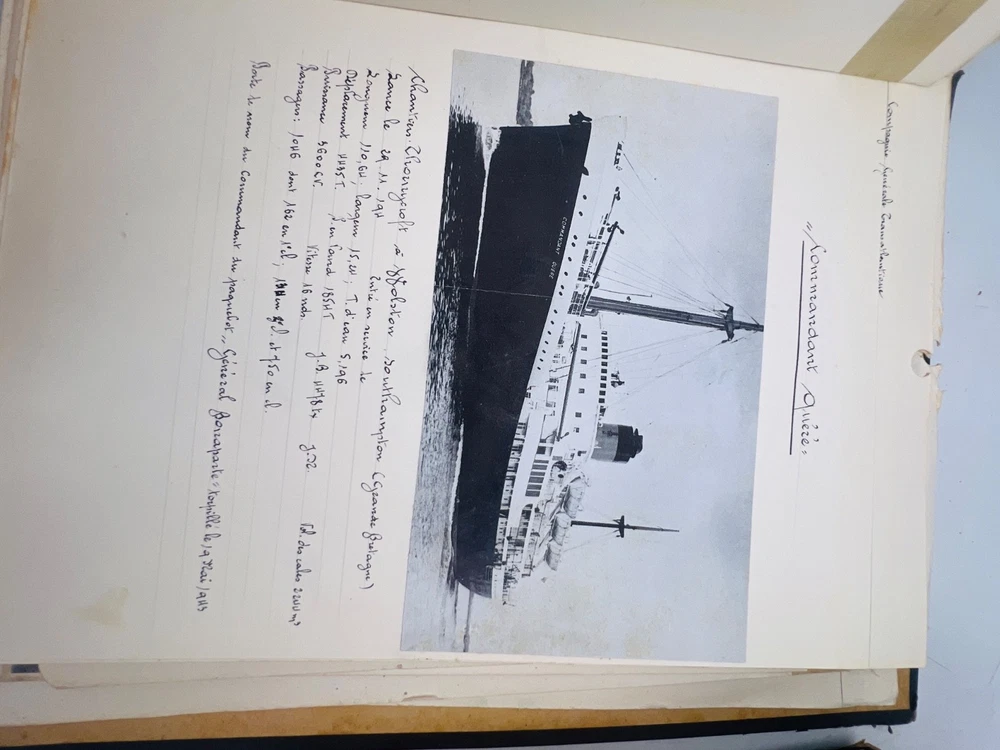 Compagnie Générale Transatlantique
"Commandant Quéré"
COMMANDANT QUERE
Chantiers: Thornycroft à Wolston Southampton (Grande Bretagne)
Lancé le 29.11.1947 Entré en service le
Longueur 110,64; largeur 15,24; T. d'eau 5,196
Déplacement 4495 T. P. en lourd 1654T
Puissance 3600 CV. Vitesse 16 nds. J.B. 4478 tx J.N. Vol. des cales 2200 m³
Passagers: 1046 dont 162 en 1° cl; 134 en cl. et 750 en cl.
Porte le nom du Commandant du paquebot "Général Bonaparte" torpillé le 19 Mai 1943